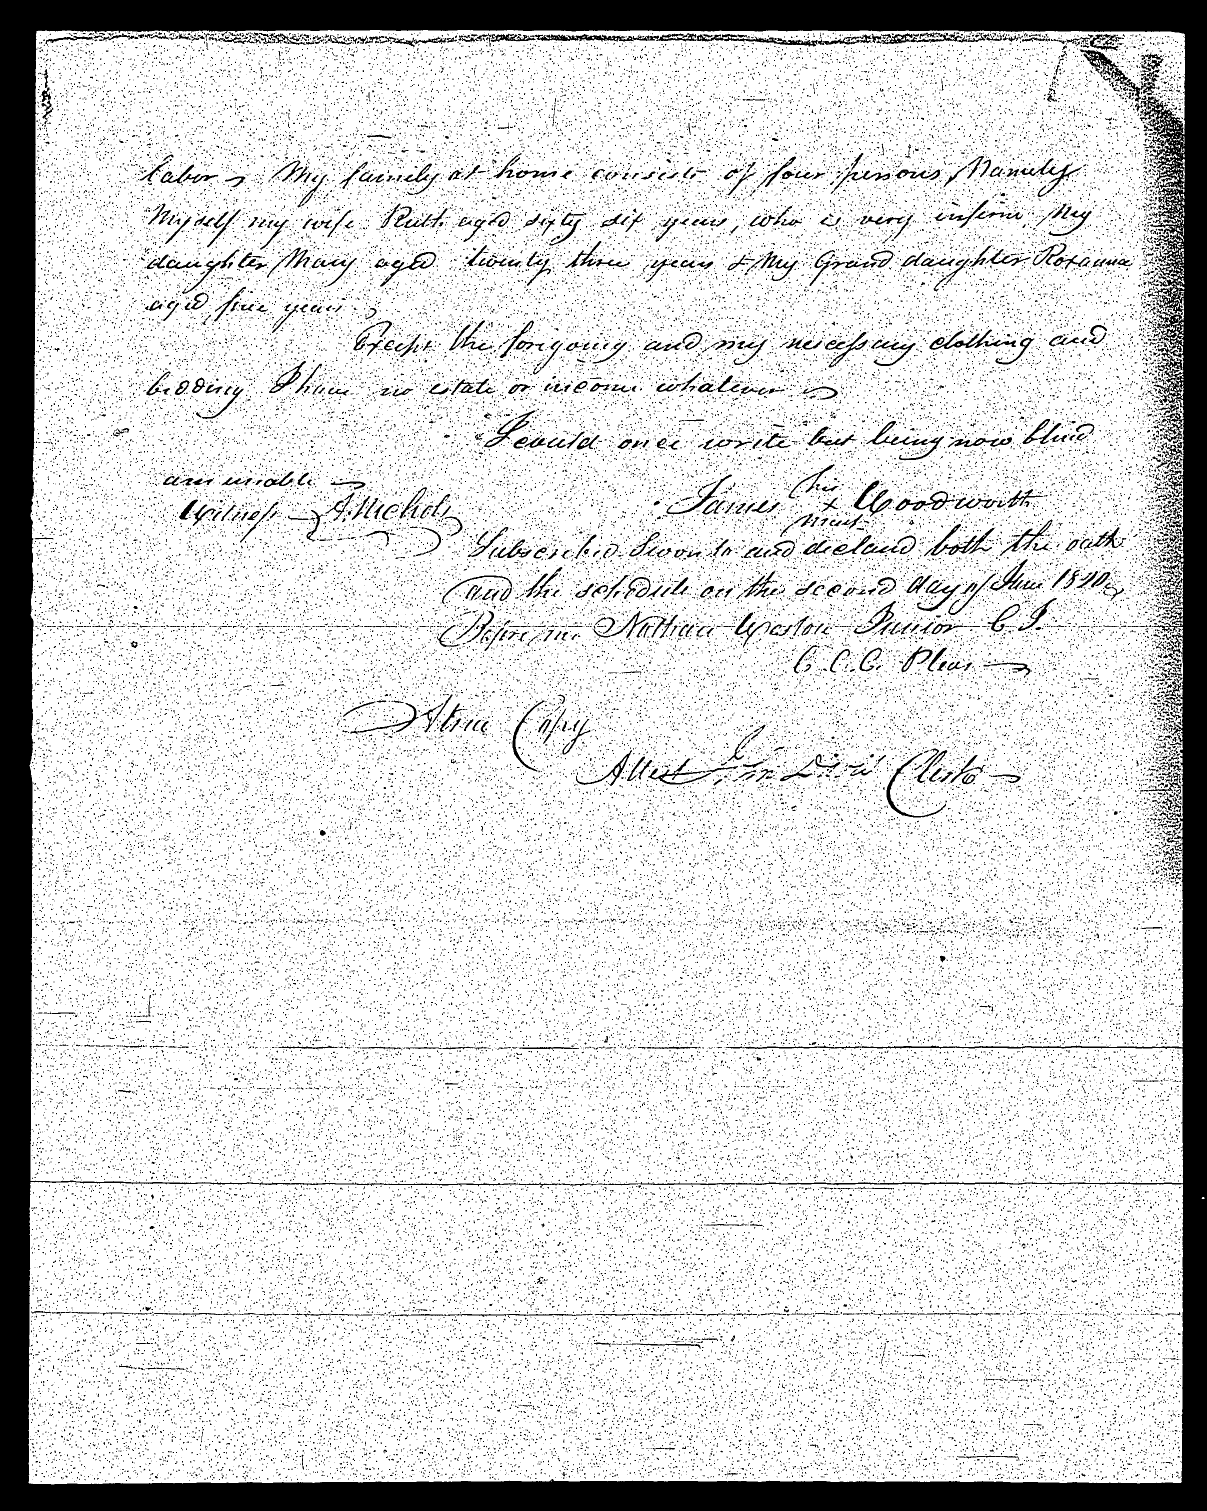 labor. My family at home consists of four persons, Namely
Myself my wife Ruth aged sixty six years, who is very infirm, My
daughter Mary aged twenty three years & My Grand daughter Roxanna
aged five years.
Except the foregoing and my necessary clothing and
bedding I have no estate or income whatever
I could once write but being now blind
am unable
his
Witness A. Nichols James x Woodworth
mark
Subscribed Sworn to and declared both the oath
and the schedule on the second day of June 1820.
Before me Nathan Weston Junior C. J.
C. C. C. Pleas
A true Copy
Attest Clerk